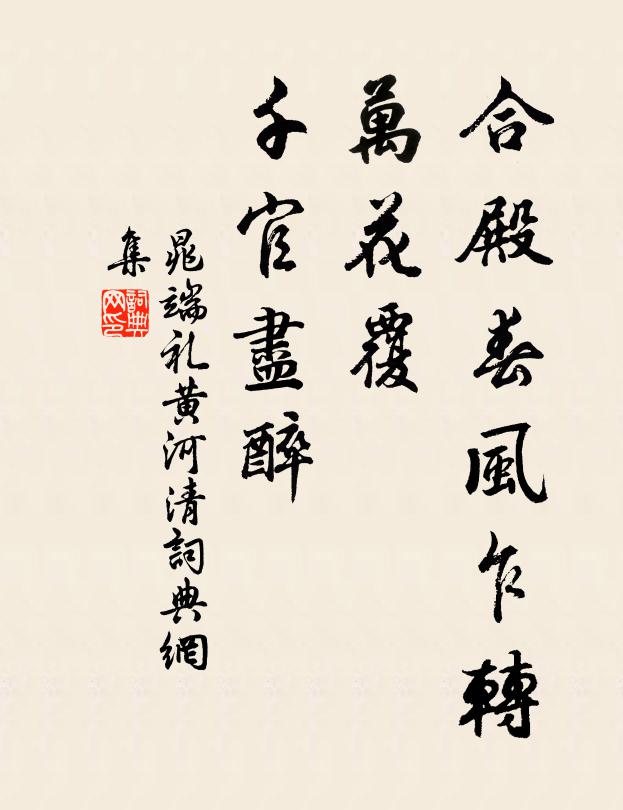 合殿春風乍轉
萬花覆
千官盡醉
晁端礼黄河清詞典網
集
詞典
网印